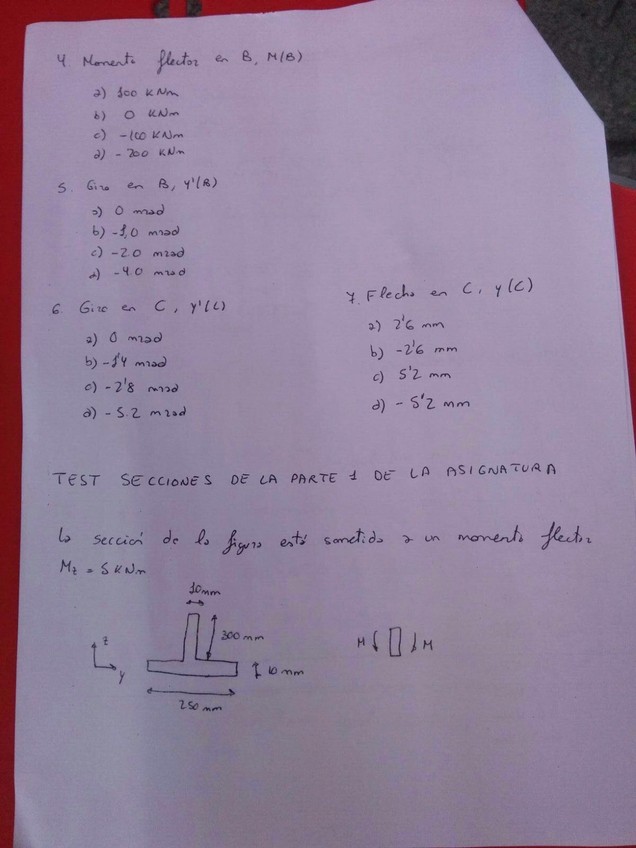 4. Momento flector en B, M(B)
a) 100 KNm
b) 0 KNm
c) -100 KNm
d) -200 KNm
5. Giro en B, y'(B)
a) 0 mrad
b) -1,0 mrad
c) -2.0 mrad
d) -4.0 mrad
6. Giro en C, y'(C)
a) 0 mrad
b) -1'4 mrad
c) -2'8 mrad
d) -5.2 mrad
7. Flecha en C, y(C)
a) 2'6 mm
b) -2'6 mm
c) 5'2 mm
d) -5'2 mm
TEST SECCIONES DE LA PARTE 1 DE LA ASIGNATURA
La sección de la figura está sometida a un momento flector
Mz = 5 KNm
10mm
300 mm
z
y
10 mm
250 mm
M M